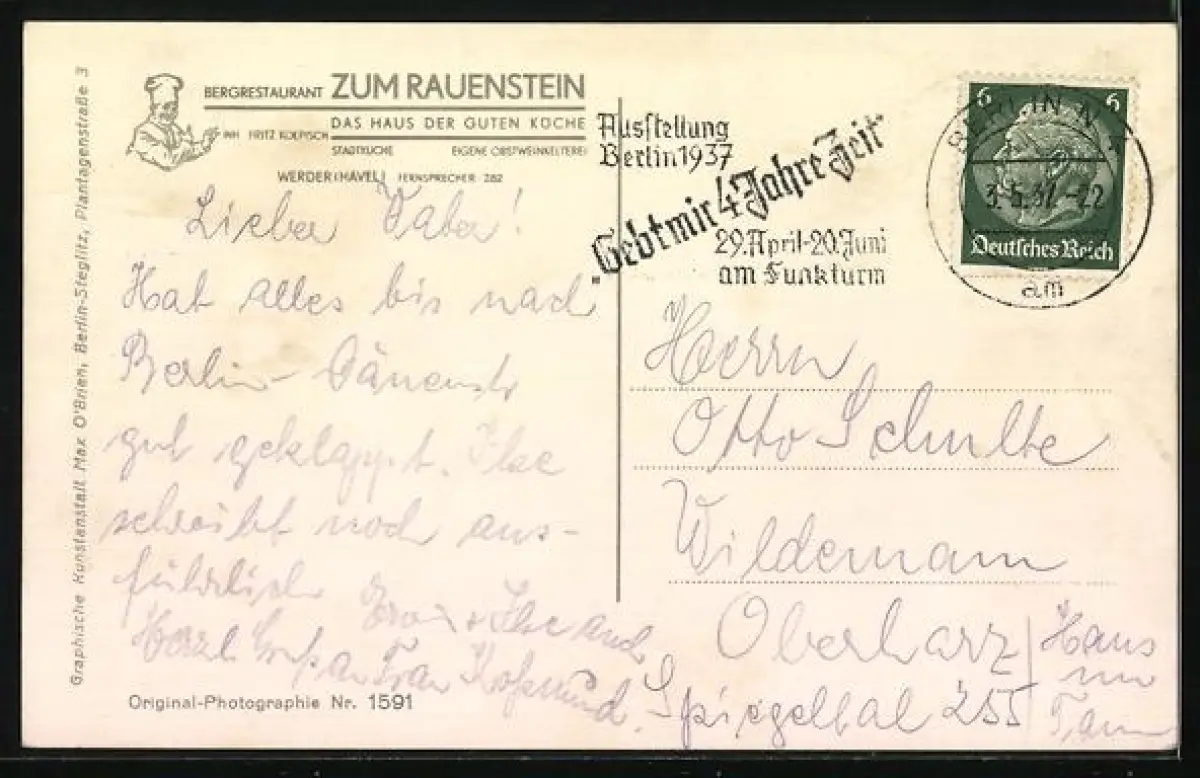 BERGRESTAURANT ZUM RAUENSTEIN
DAS HAUS DER GUTEN KÜCHE
INH. FRITZ KOEPISCH
STADTKÜCHE EIGENE OBSTWEINKELTEREI
WERDER (HAVEL) FERNSPRECHER 282
Lieber Vater!
Hat alles bis nach
Berlin
gut geklappt. Ilse
schreibt noch aus-
führlich
Ilse
Herzl. an Frau
Original-Photographie Nr. 1591
Graphische Kunstanstalt Max O'Brien, Berlin-Steglitz, Plantagenstraße 3
Ausstellung
Berlin 1937
"Gebt mir 4 Jahre Zeit"
29. April-20. Juni
am Funkturm
BERLIN N
3.5.37.-22
am
6 6
Deutsches Reich
Herrn
Otto Schulte
Wildemann
Oberharz
Spiegeltal 255
Haus
im
Tann